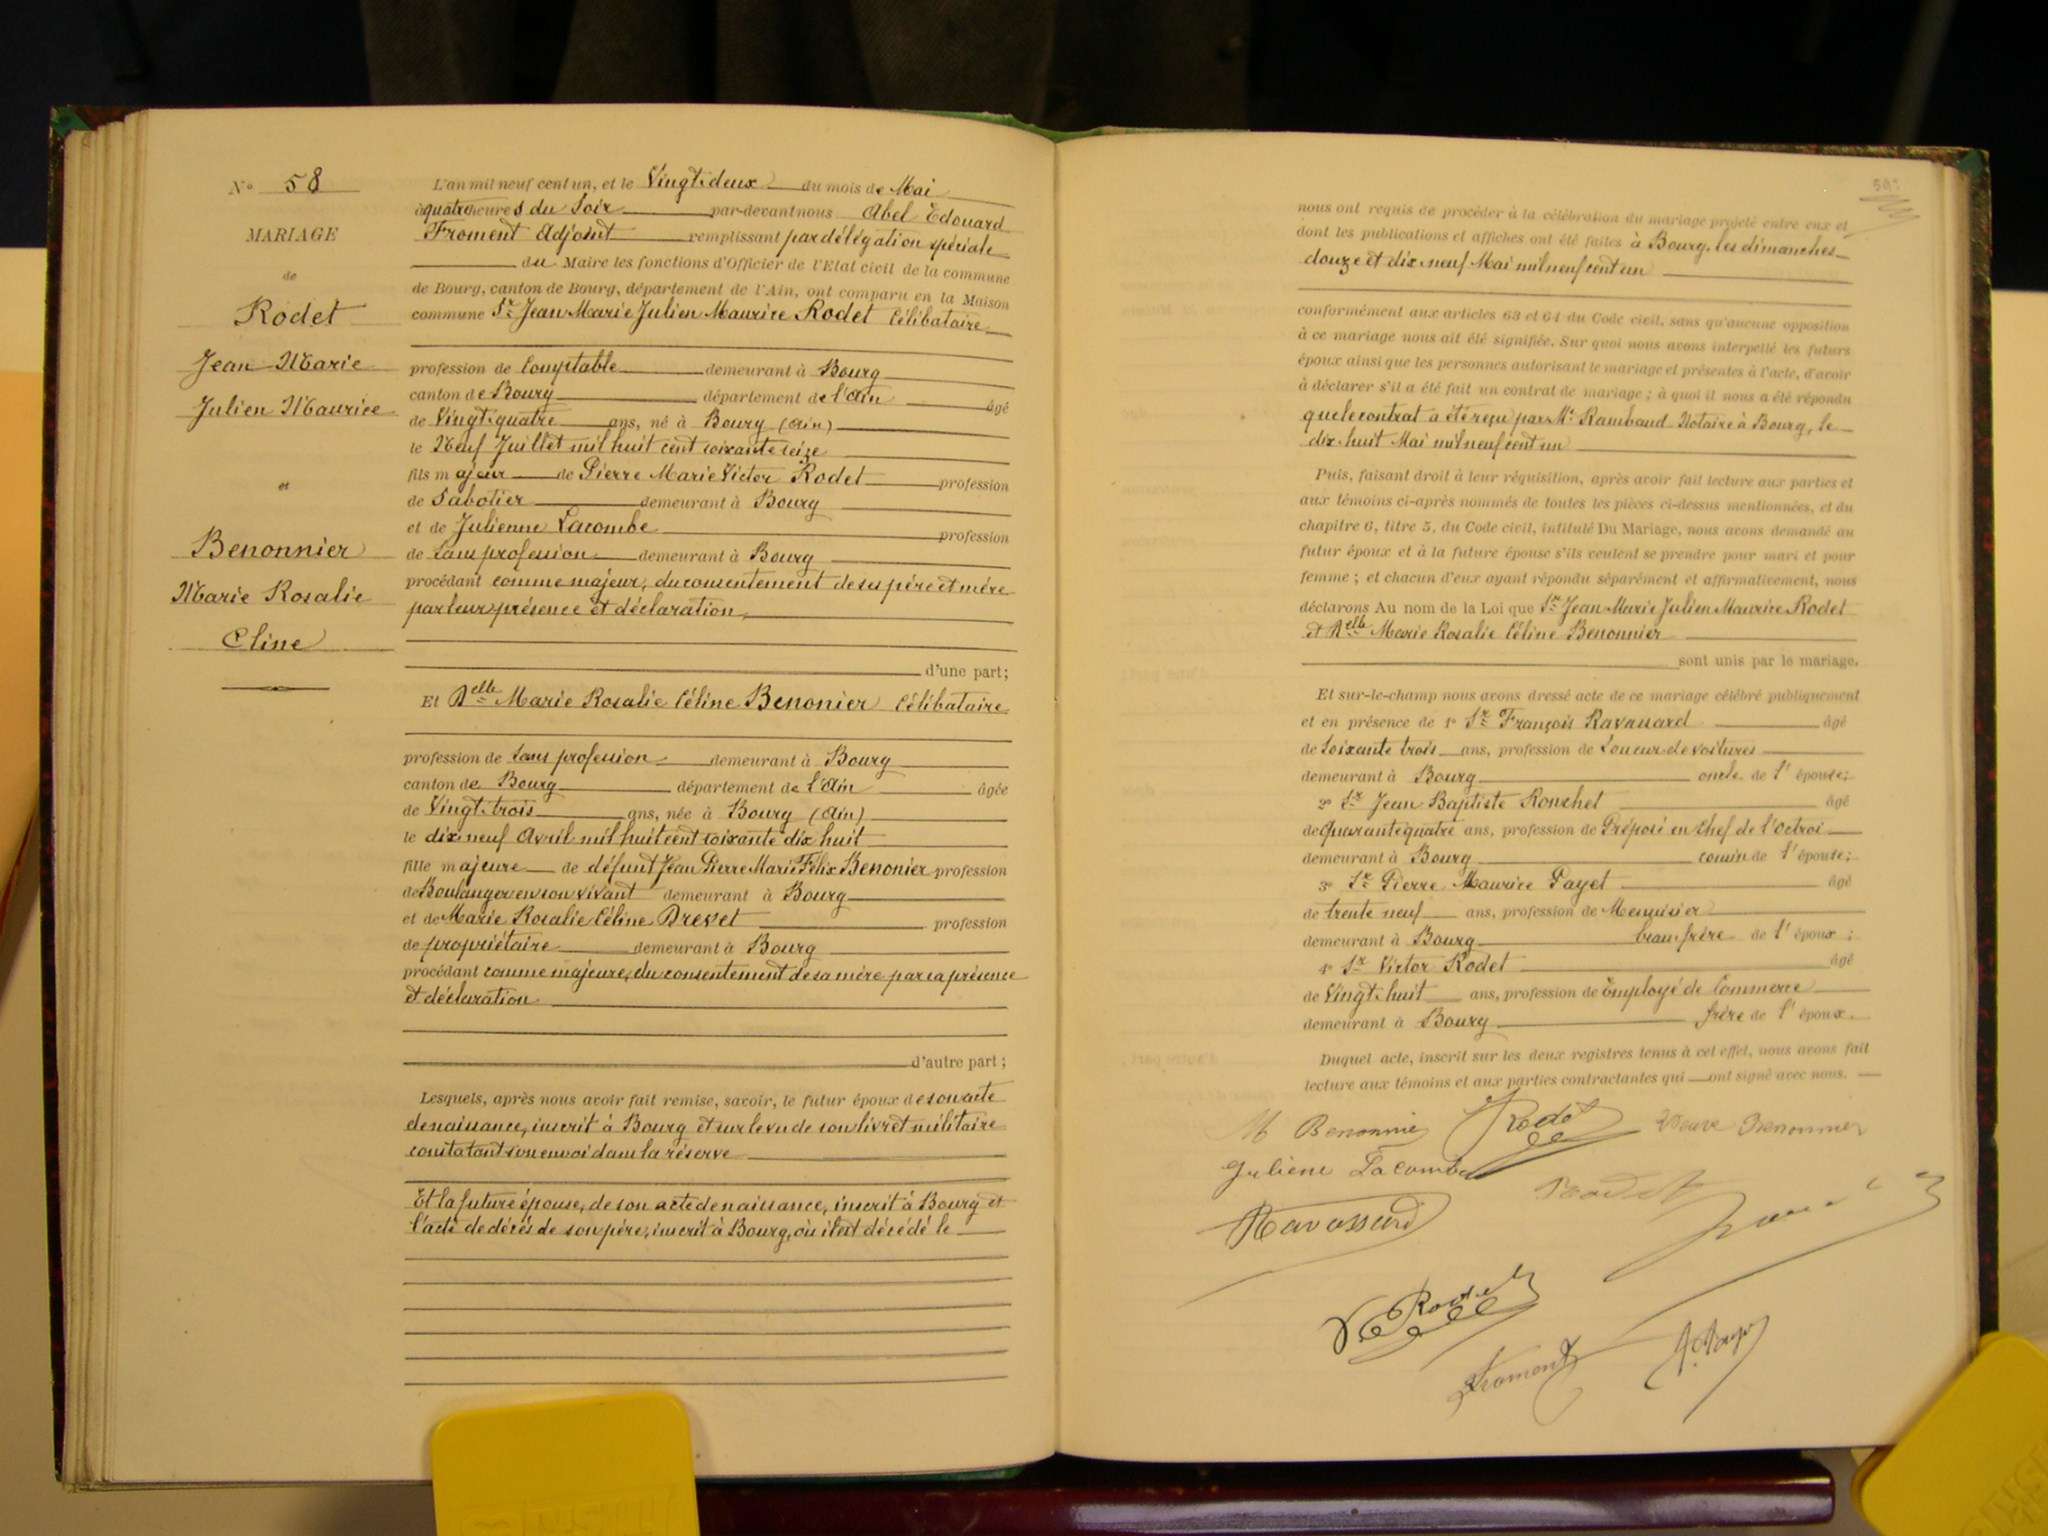 N° 58
MARIAGE
de
Rodet
Jean Marie
Julien Maurice
et
Benonnier
Marie Rosalie
Cline
L'an mil neuf cent un, et le Vingt deux du mois de Mai
à quatre heures du Soir par-devant nous Abel Edouard
Froment Adjoint remplissant par délégation spéciale
du Maire les fonctions d'Officier de l'Etat civil de la commune
de Bourg, canton de Bourg, département de l'Ain, ont comparu en la Maison
commune Sr Jean Marie Julien Maurice Rodet Célibataire
profession de Comptable demeurant à Bourg
canton de Bourg département de l'Ain âgé
de Vingt quatre ans, né à Bourg (Ain)
le Neuf Juillet mil huit cent soixante seize
fils majeur de Pierre Marie Victor Rodet profession
de Sabotier demeurant à Bourg
et de Julienne Lacombe profession
de Sans profession demeurant à Bourg
procédant comme majeur, du consentement de ses père et mère
par leur présence et déclaration
d'une part;
Et Delle Marie Rosalie Céline Benonier Célibataire
profession de Sans profession demeurant à Bourg
canton de Bourg département de l'Ain âgée
de Vingt-trois ans, née à Bourg (Ain)
le dix neuf Avril mil huit cent soixante dix huit
fille majeure de défunt Jean Pierre Marie Félix Benonier profession
de Boulanger en son vivant demeurant à Bourg
et de Marie Rosalie Céline Drevet profession
de propriétaire demeurant à Bourg
procédant comme majeure, du consentement de sa mère par sa présence
et déclaration
d'autre part;
Lesquels, après nous avoir fait remise, savoir, le futur époux de son acte
de naissance, inscrit à Bourg et sur le vu de son livret militaire
constatant son envoi dans la réserve
Et la future épouse, de son acte de naissance, inscrit à Bourg et
l'acte de décès de son père, inscrit à Bourg, où il est décédé le
nous ont requis de procéder à la célébration du mariage projeté entre eux et
dont les publications et affiches ont été faites à Bourg, les dimanches
douze et dix neuf Mai mil neuf cent un
conformément aux articles 63 et 64 du Code civil, sans qu'aucune opposition
à ce mariage nous ait été signifiée. Sur quoi nous avons interpellé les futurs
époux ainsi que les personnes autorisant le mariage et présentes à l'acte, d'avoir
à déclarer s'il a été fait un contrat de mariage; à quoi il nous a été répondu
que le contrat a été reçu par Me Rambaud Notaire à Bourg, le
dix huit Mai mil neuf cent un
Puis, faisant droit à leur réquisition, après avoir fait lecture aux parties et
aux témoins ci-après nommés de toutes les pièces ci-dessus mentionnées, et du
chapitre 6, titre 5, du Code civil, intitulé Du Mariage, nous avons demandé au
futur époux et à la future épouse s'ils veulent se prendre pour mari et pour
femme; et chacun d'eux ayant répondu séparément et affirmativement, nous
déclarons Au nom de la Loi que Sr Jean Marie Julien Maurice Rodet
et Delle Marie Rosalie Céline Benonnier
sont unis par le mariage.
Et sur-le-champ nous avons dressé acte de ce mariage célébré publiquement
et en présence de 1° Sr François Ravassard âgé
de Soixante trois ans, profession de Loueur de voitures
demeurant à Bourg oncle de l'épouse;
2° Sr Jean Baptiste Ronchet âgé
de Quarante quatre ans, profession de Préposé en Chef de l'Octroi
demeurant à Bourg cousin de l'épouse;
3° Sr Pierre Maurice Payet âgé
de trente neuf ans, profession de Menuisier
demeurant à Bourg beau frère de l'époux;
4° Sr Victor Rodet âgé
de Vingt-huit ans, profession de Employé de Commerce
demeurant à Bourg frère de l'époux.
Duquel acte, inscrit sur les deux registres tenus à cet effet, nous avons fait
lecture aux témoins et aux parties contractantes qui ont signé avec nous.
M Benonnier Rodet Veuve Benonnier
Juliene Lacombe
Rodet
Ravassard
Rodet
Froment